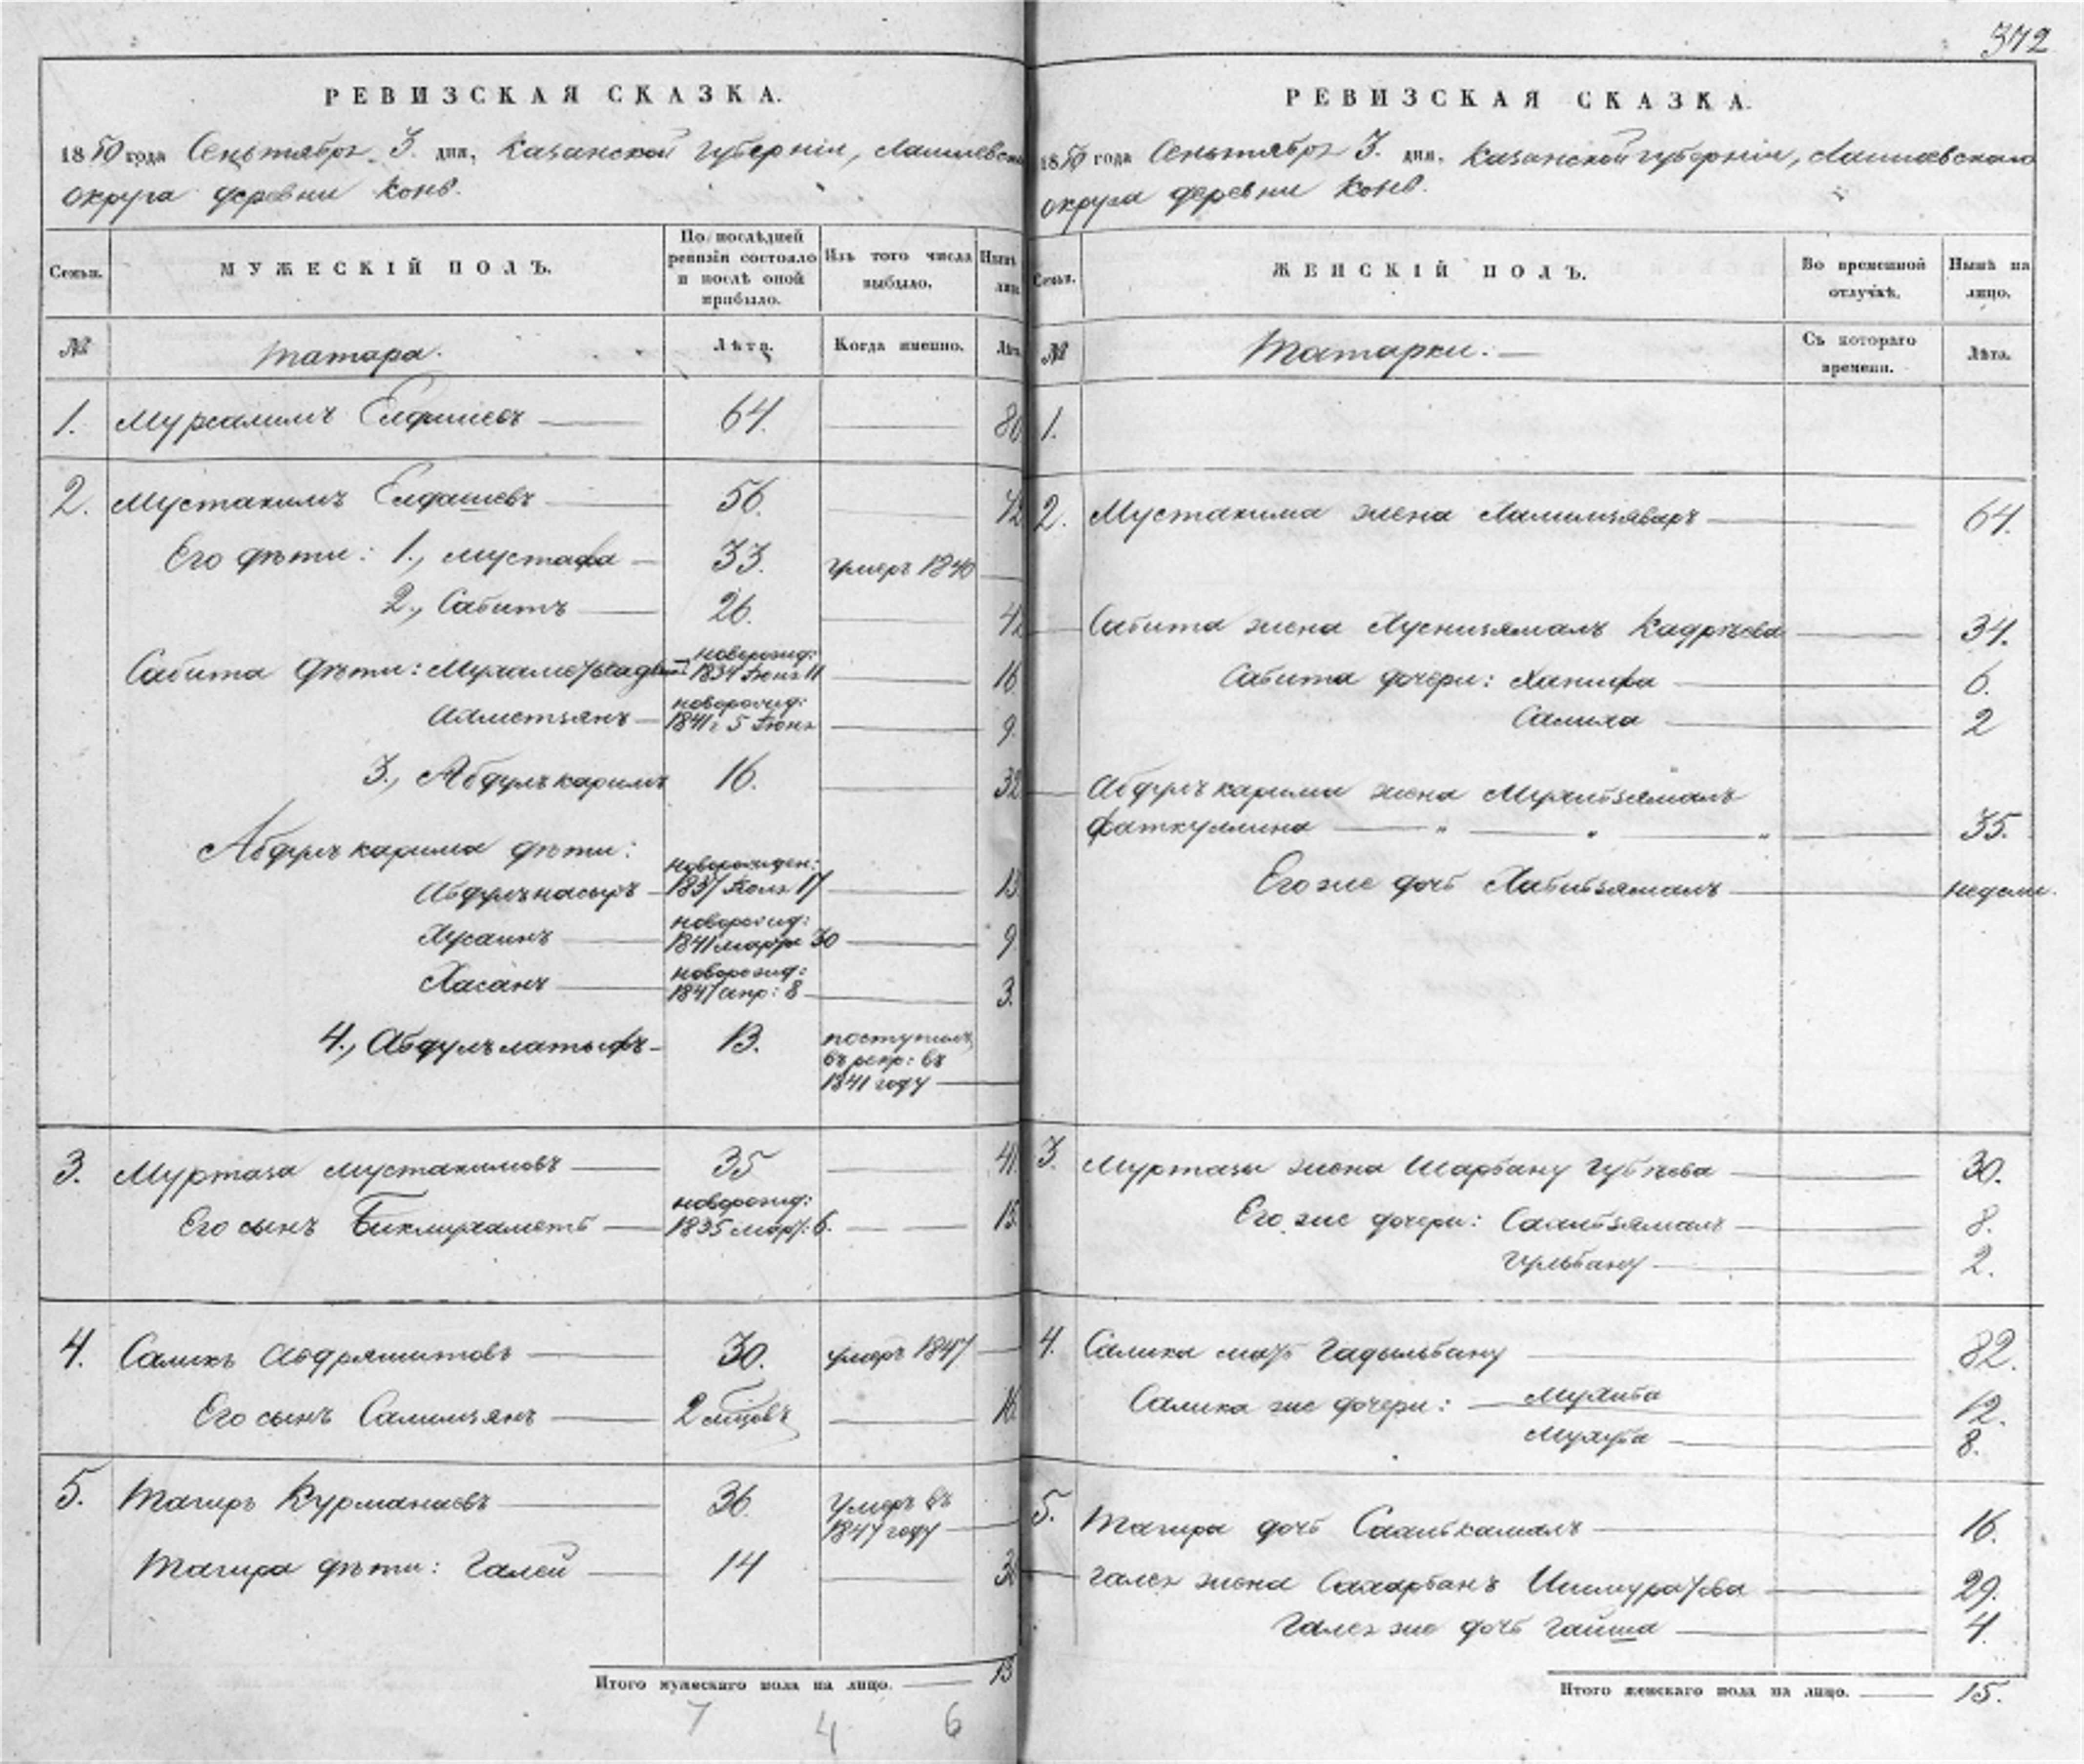 372
РЕВИЗСКАЯ СКАЗКА.
1850 года Сентября 3. дня, Казанской губерніи, Лаишевск
округа деревни Конь.
Семьи.
МУЖЕСКІЙ ПОЛЪ.
По последней
ревизіи состояло
и послѣ оной
прибыло.
Изъ того числа
выбыло.
Нынѣ
лицо
№
Татара.
Лѣта.
Когда именно.
Лѣта
1. Мурсалимъ Елфашевъ 64. 80
2. Мустакимъ Елфашевъ 56. 72
Его дѣти: 1., Мустафа 33. умеръ 1840
2., Сабитъ 26. 42
Сабита дѣти: новорожд:
1834 Іюня 11 16
новорожд:
Ахметзянъ 1841 г 5 Іюня 9
3., Абдулъкаримъ 16. 32
Абдулъкарима дѣти:
новорожден:
Абдулънасыръ 1837 Іюля 17 13
новорожд:
Хусаинъ 1841 марта 30 9
новорожд:
Хасанъ 1847 апр: 8 3.
4., Абдулълатыфъ 13. поступилъ
въ рекр: въ
1841 году
3. Муртаза Мустакимовъ 35 41.
новорожд:
Его сынъ Бикмухаметь 1835 март: 6. 15.
4. Саликъ Абдряшитовъ 30. умеръ 1847
Его сынъ Салимзянъ 2 мѣсцовъ 16.
5. Тагиръ Курманаевъ 36. Умеръ въ
1847 году
Тагира дѣти: Галей 14 30
Итого мужескаго пола на лицо. 13
7 4 6
РЕВИЗСКАЯ СКАЗКА.
1850 года Сентября 3. дня, Казанской губерніи, Лаишевскаго
округа деревни Конь.
Семьи.
ЖЕНСКІЙ ПОЛЪ.
Во временной
отлучкѣ.
Нынѣ на
лицо.
№
Татарки.
Съ котораго
времени.
Лѣта.
1.
2. Мустакима жена 64.
Сабита жена Хуснизямалъ Кадрѣева 34.
Сабита дочери: Ханифа 6.
Салиха 2
Абдулъкарима жена Мухибзямалъ
Фаткуллина 35.
Его же дочь Хабибзямалъ недели.
3. Муртазы жена Шарбану 30.
Его же дочери: Саыибзямалъ 8.
Гульбану 2.
4. Салика мать Гадыльбану 82.
Салика же дочери: Мухиба 12.
Мухуба 8.
5. Тагира дочь Саыибкамалъ 16.
Галея жена Сахарбанъ Ишмуратова 29.
Галея же дочь Гайша 4.
Итого женскаго пола на лицо. 15.